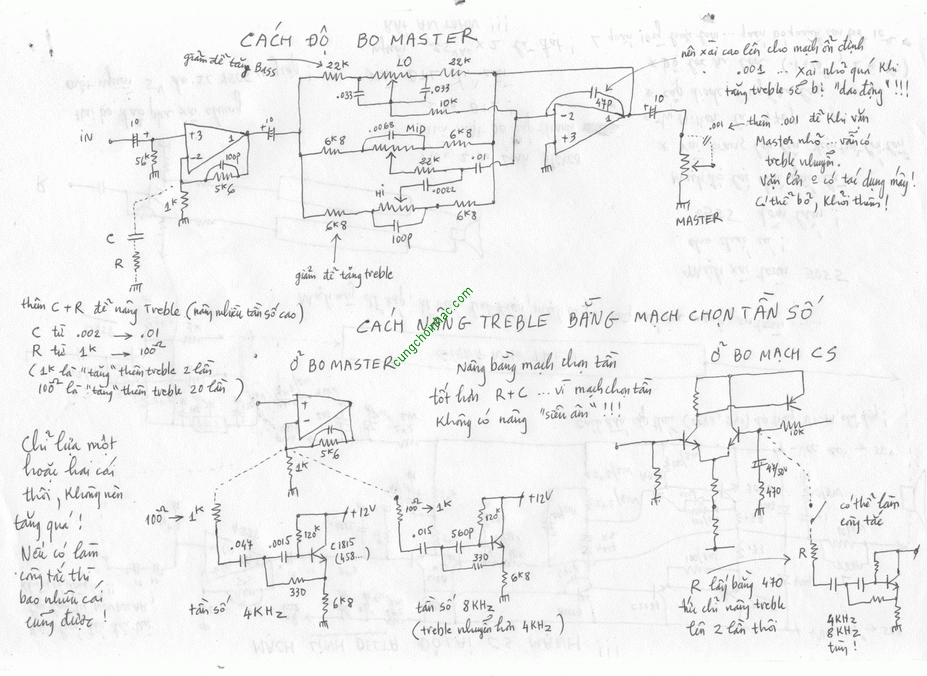 CÁCH ĐỘ BO MASTER
giảm để tăng BASS
22K LO 22K
.033 .033
10K
nên xài cao lên cho mạch ổn định
.001 ... Xài nhỏ quá khi
tăng treble sẽ bị "dao động" !!!
47P
10
.001 ← thêm .001 để khi vặn
Master nhỏ ... vẫn có
treble nhuyễn.
Vặn lớn
có tác dụng mấy !
Có thể bỏ, khỏi thêm !
MASTER
iN
10
+
56K
+3
-2
1
100P
5K6
1K
+10
6K8 .0068 MiD 6K8
22K .01
.0022
Hi
6K8 100P 6K8
-2
+3
1
C
R
giảm để tăng treble
thêm C + R để nâng Treble (nâng nhiều tần số cao)
C từ .002 → .01
R từ 1K → 100Ω
(1K là "tăng" thêm treble 2 lần
100Ω là "tăng" thêm treble 20 lần)
cungchoinhac.com
CÁCH NÂNG TREBLE BẰNG MẠCH CHỌN TẦN SỐ
Ở BO MASTER
Nâng bằng mạch chọn tần
tốt hơn R+C ... vì mạch chọn tần
không có nâng "siêu âm" !!!
Ở BO MẠCH CS
+
-
5K6
1K
10K
47/50V
470
Chỉ lựa một
hoặc hai cái
thôi, không nên
tăng quá !
Nếu có làm
công tắc thì
bao nhiêu cái
cũng được !
100Ω → 1K
.047 .0015
120K
+12V
C1815
(458...)
330
6K8
tần số 4KHz
100Ω → 1K
.015 560P
120K
+12V
330
6K8
tần số 8KHz
(treble nhuyễn hơn 4KHz)
có thể làm
công tắc
R
R lấy bằng 470
thì chỉ nâng treble
lên 2 lần thôi
4KHz
8KHz
tùy !